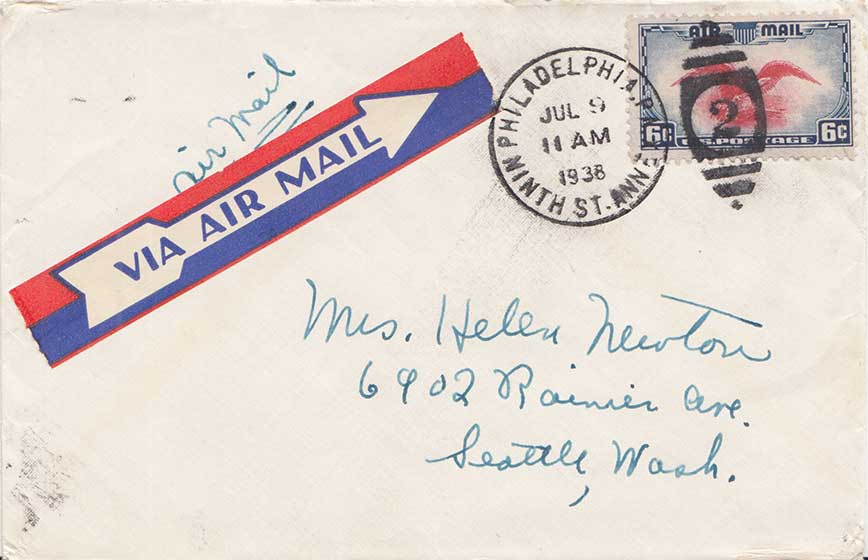 air mail
VIA AIR MAIL
PHILADELPHIA, P
JUL 9
11 AM
1938
NINTH ST. ANNE
AIR MAIL
2
6¢ 6¢
U.S. POSTAGE
Mrs. Helen Newton
6902 Rainier Ave.
Seattle, Wash.